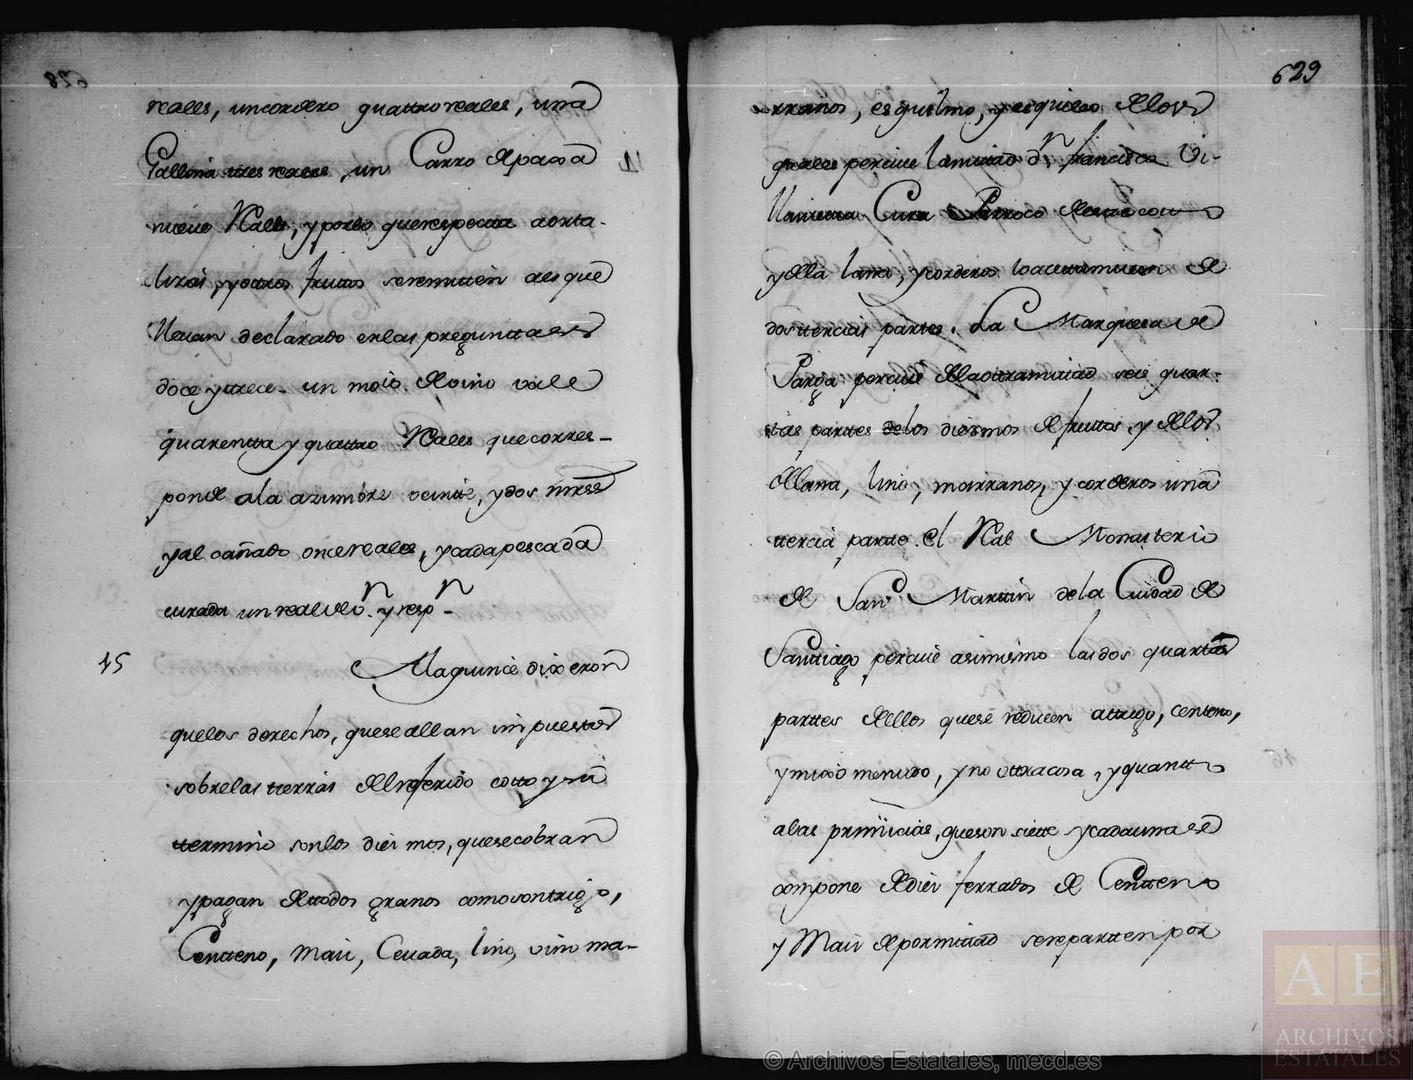 reales, un cordero quattro reales, una
Gallina tres reales, un Carro de paxa
nueve Reales, y por lo que respecta a orta-
lizas, y otros fruttos se remitten a es que
llevan declarado en las preguntas
doce y trece. un moio de vino vale
quarentta y quattro Reales que corres-
ponde a la azumbre veintte, y dos mrs
y al cañado once reales, y cada pescada
curada un real de vón. y respn
15
A la quince dixeron
que los derechos, que se allan impuestos
sobre las tierras del referido cotto y su
termino son los diezmos, que se cobran
y pagan de todos granos como son trigo,
Centteno, Maiz, Cevada, lino, vino ma-
629
rranos, esquilmo, y esquileo de los
quales percive la mittad Dn. francisco Vi-
Cura Parroco de este coto
y de la lana, y corderos de
dos tercias partes. La Marquesa de
Parga percive de la otra mittad seis quar-
tas parttes de los diezmos de fruttos, y de los
de lana, lino, marranos, y corderos una
tercia partte. el Real Monasterio
de San Martin de la Ciudad de
Santtiago percive asimismo las dos quartas
parttes de ellos que se reducen a ttrigo, centeno,
y mixo menudo, y no ottra cosa, y quantto
a las primicias, que son siette y cada una se
compone de diez ferrados de Centteno
y Maiz de por mittad se repartten por
© Archivos Estatales, mecd.es
AE
ARCHIVOS
ESTATALES